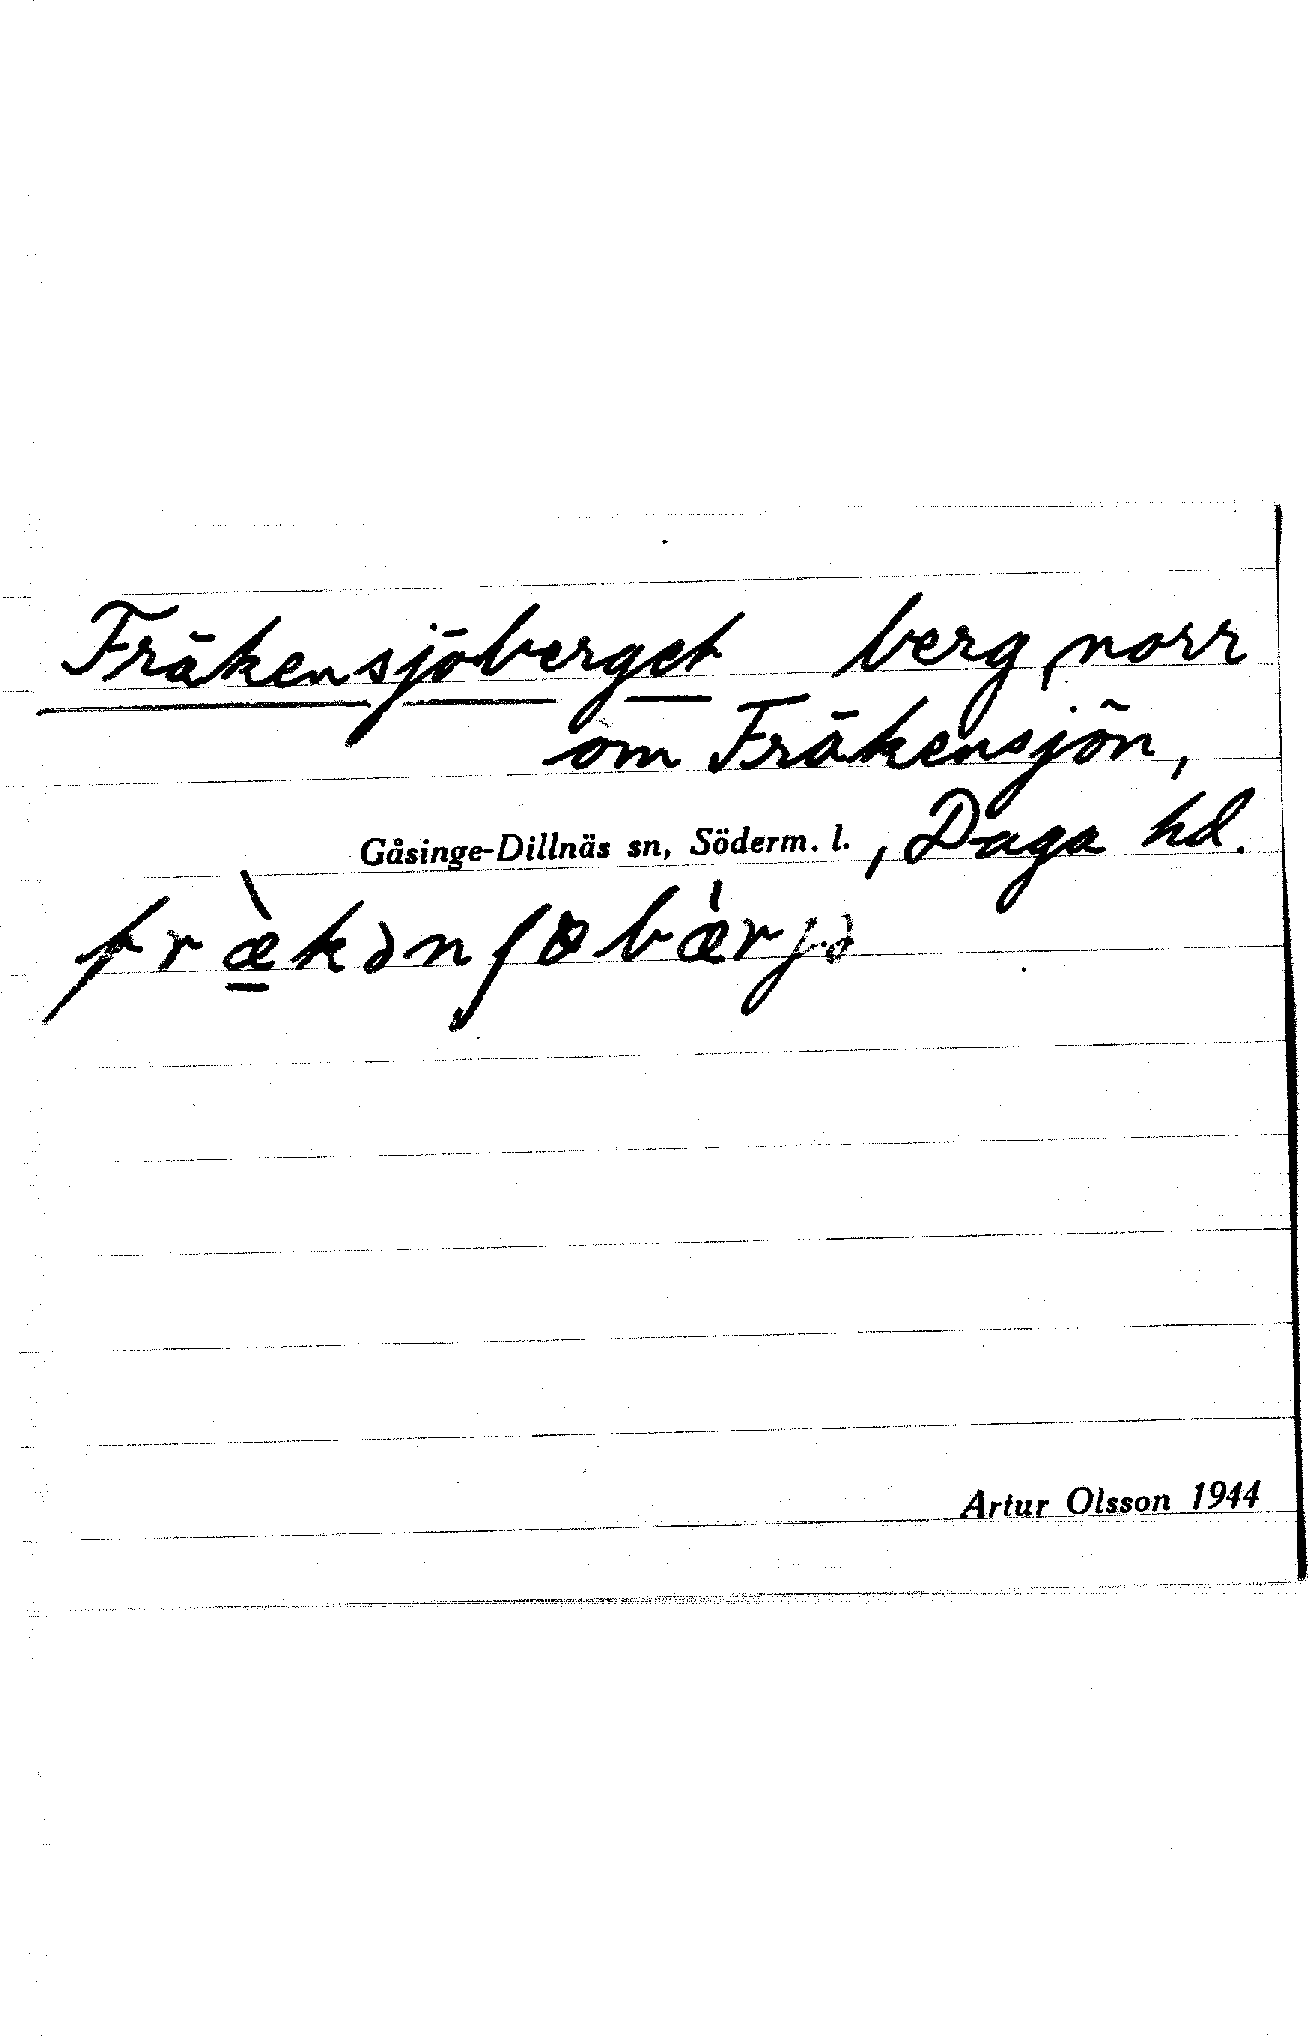 Fräkensjöberget berg, norr
om Fräkensjön,
Gåsinge-Dillnäs sn, Söderm. l., Daga hd.
fræ̀kənʃøbæ̀rjə
Artur Olsson 1944